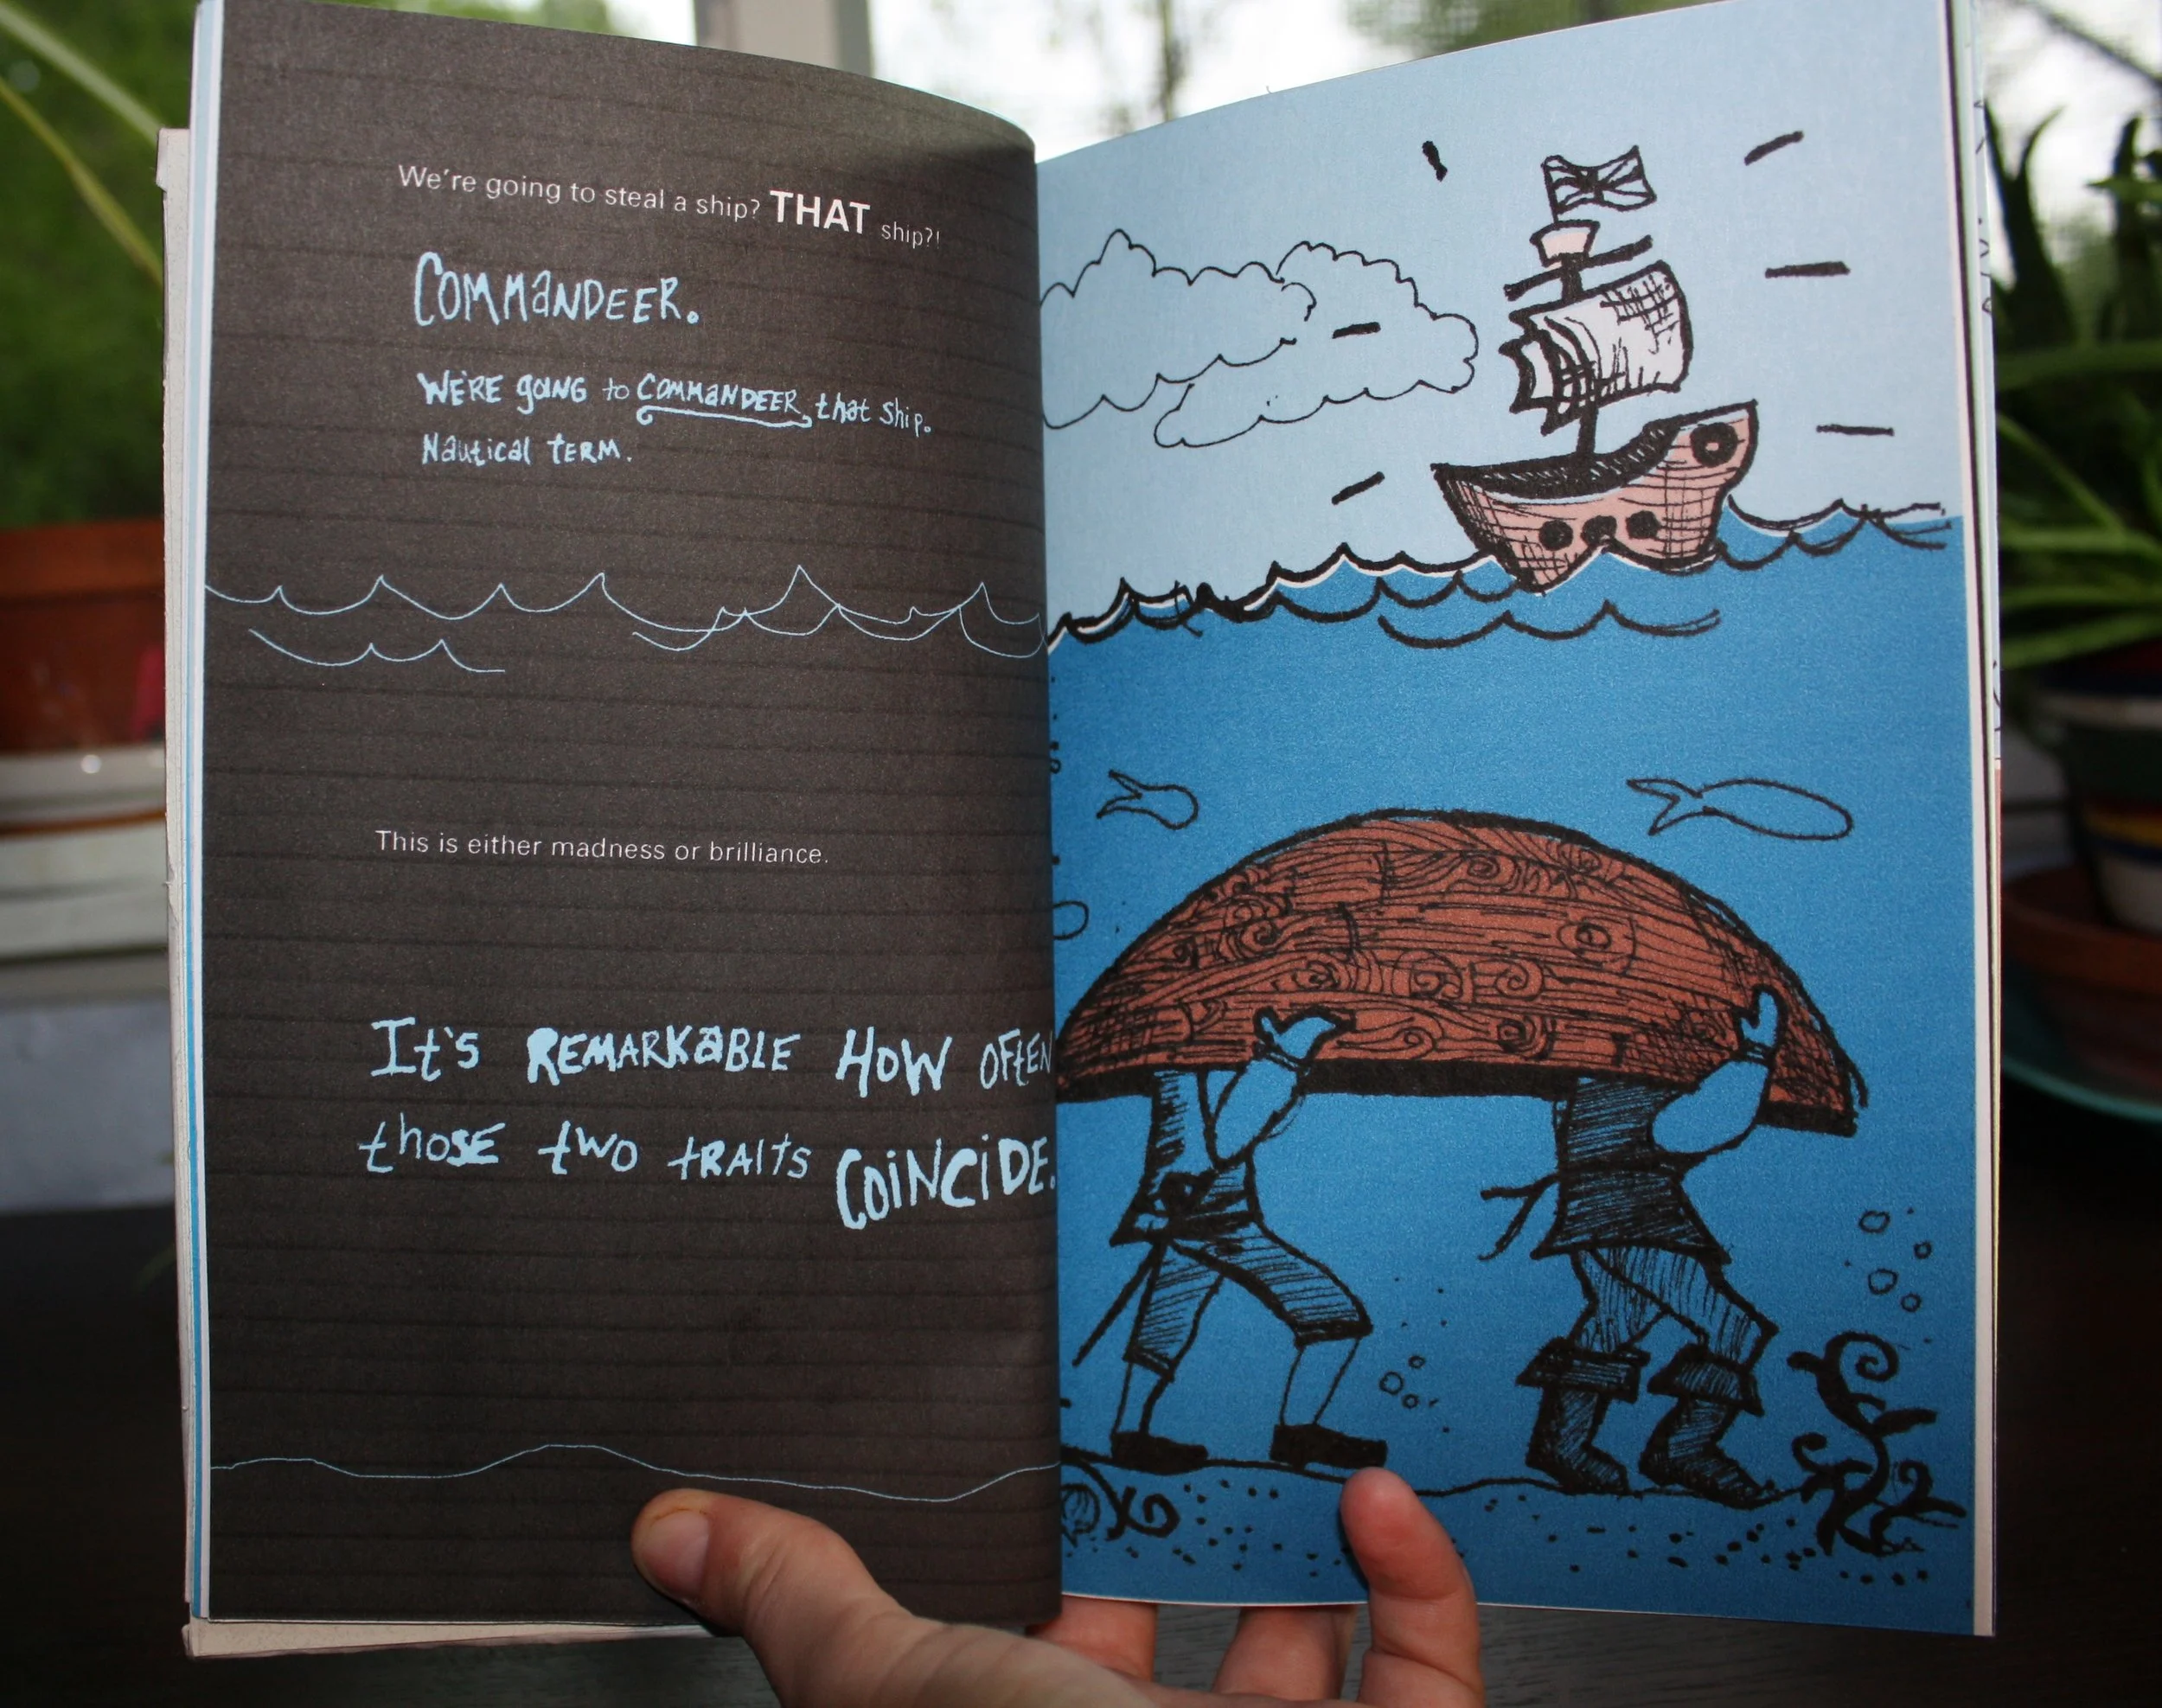 We're going to steal a ship? THAT ship?!
COMMaNDEER.
WE'RE goING to COMMaNDEER that ship.
Nautical TERM.
This is either madness or brilliance.
It's REMARKaBLE HOW OFtEN
thosE two tRAIts COiNCiDE.